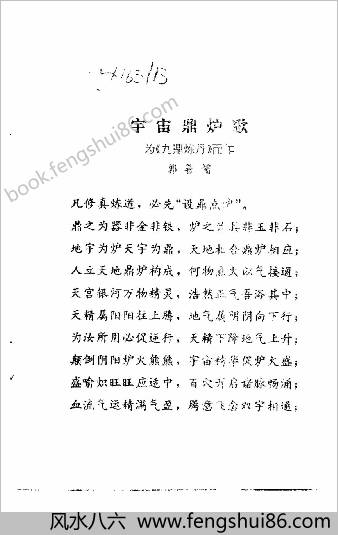 163/13
宇宙鼎炉歌
为《九鼎炼丹》而作
凡修真炼道，必先“设鼎点炉”。
鼎之为器非金非铁，炉之为具非玉非石；
地宇为炉天宇为鼎，天地相合鼎炉相应；
人立天地鼎炉构成，何物点火以气接通；
天宫银河万物精灵，浩然正气吾浴其中；
天精属阳阳在上腾，地气属阴阴向下行；
为汝所用必促逆行，天精下降地气上升；
颠倒阴阳炉火熊熊，宇宙精华促炉火盛；
盛喻炽旺旺应适中，百穴开启诸脉畅涌；
血流气运精满气盈，
book.fengshui86.com
风水八六 www.fengshui86.com